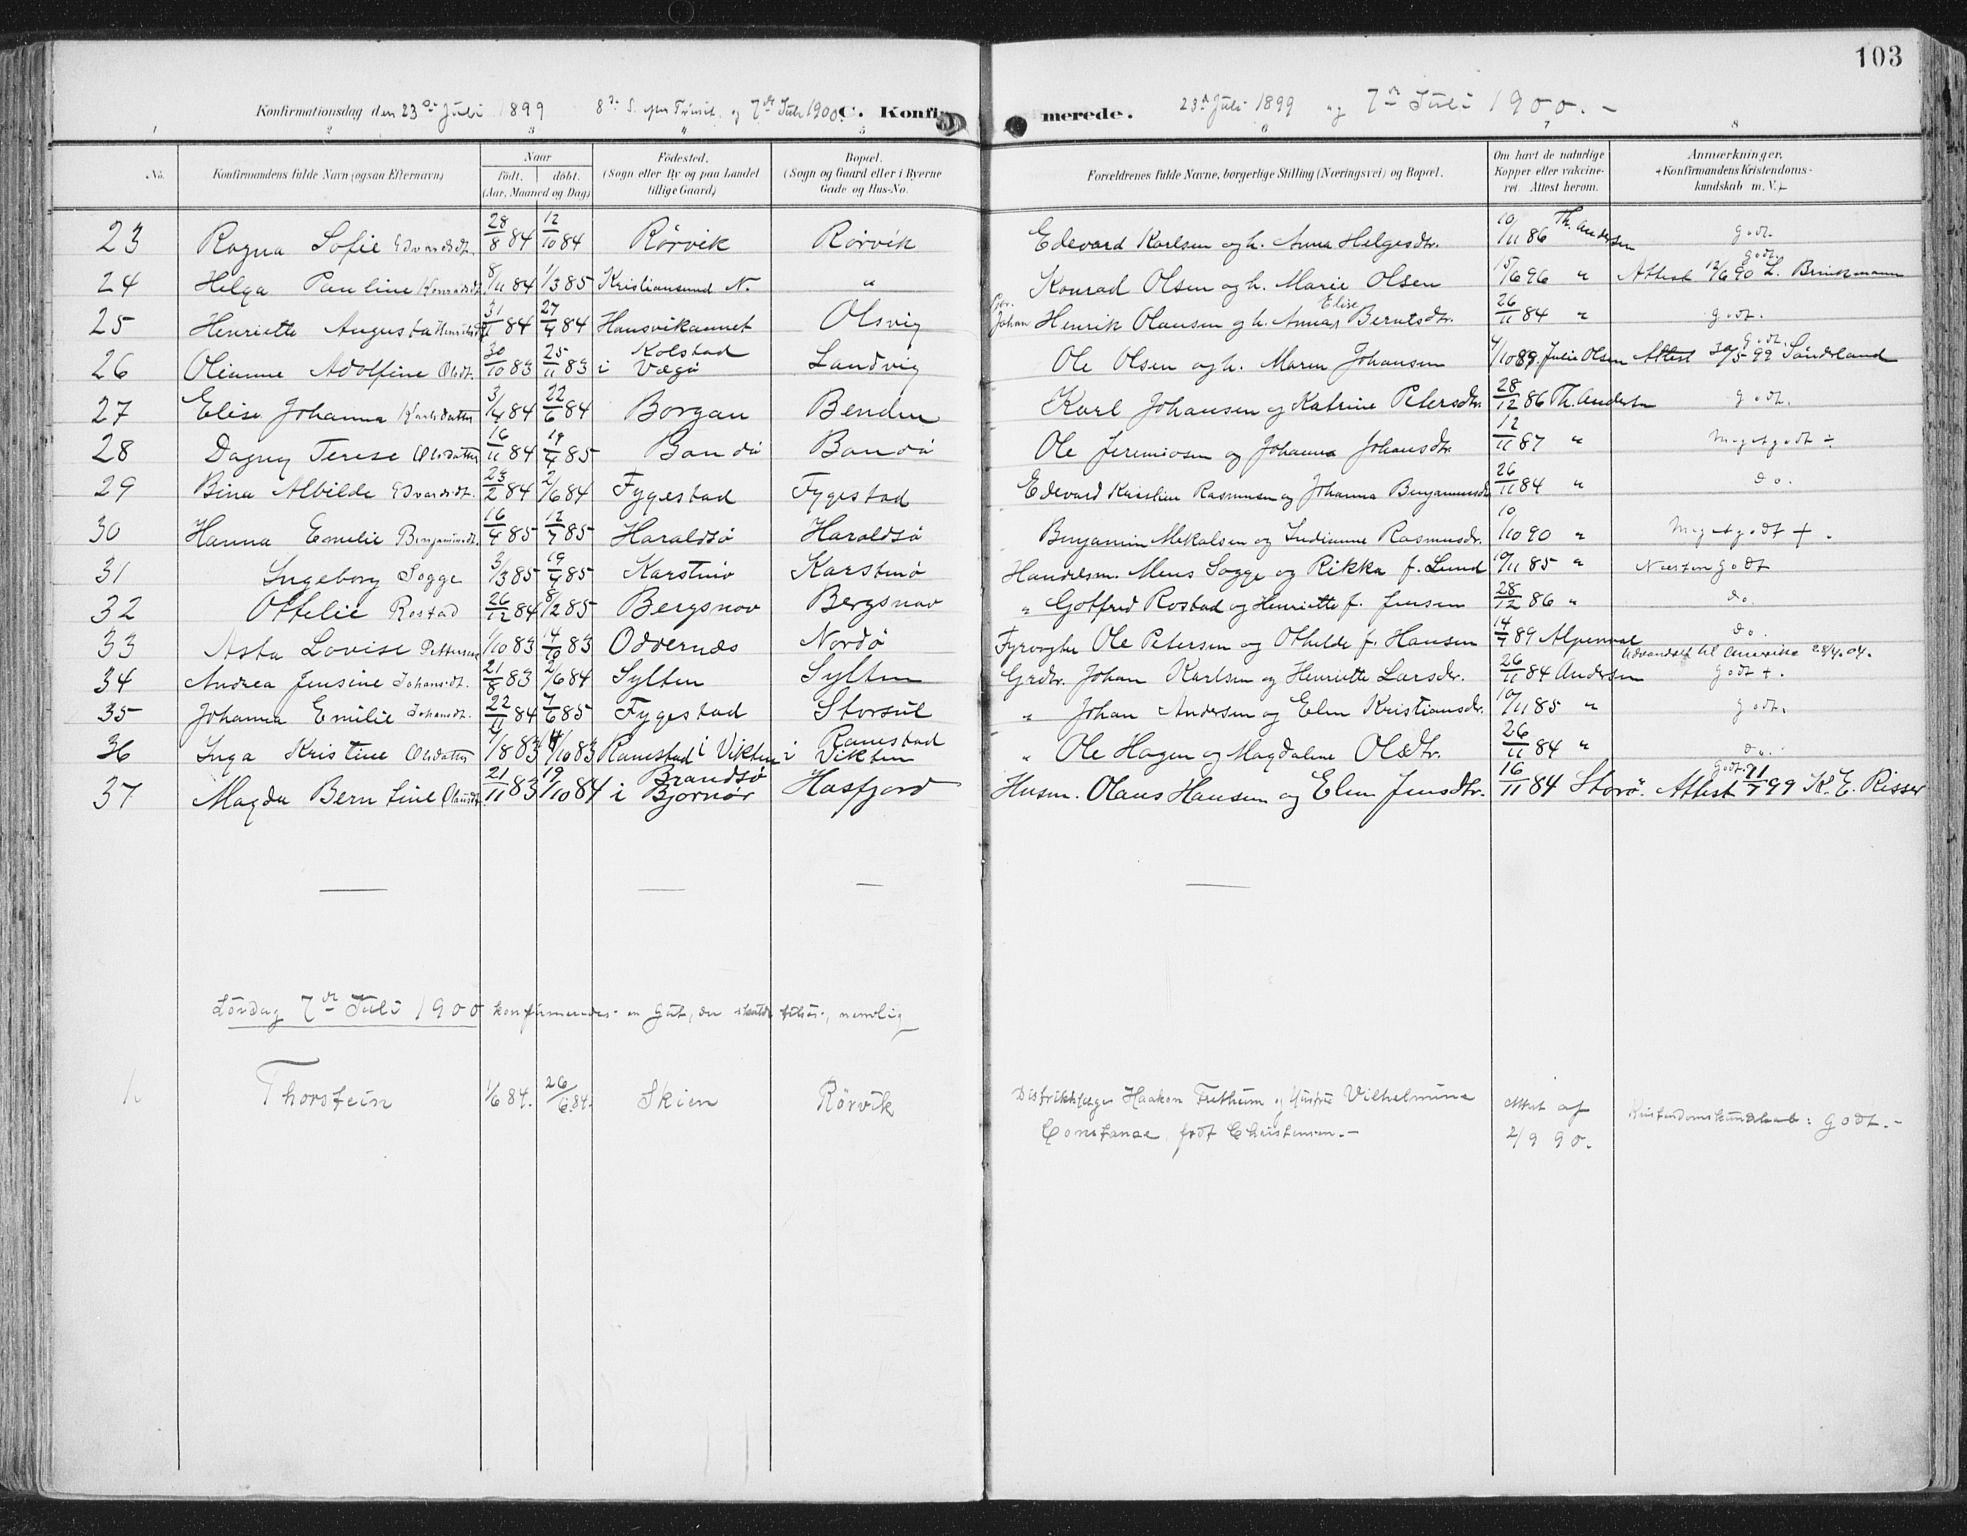 103
Konfirmationsdag den 23de Juli 1899 8de S. efter Trinit. og 7de Juli 1900. C. Konfirmerede. 23de Juli 1899 og 7de Juli 1900.-
1 2 3 4 5 6 7 8
No. Konfirmandens fulde Navn (ogsaa Efternavn) Naar født. døbt. (Aar, Maaned og Dag) Fødested. (Sogn eller By og paa Landet tillige Gaard) Bopæl. (Sogn og Gaard eller i Byerne Gade og Hus-No. Forældrenes fulde Navne, borgerlige Stilling (Næringsvei) og Bopæl. Om havt de naturlige Kopper eller vakcineret. Attest herom. Anmærkninger. (Konfirmandens Kristendomskundskab m. V.)
23 Ragna Sofie Edvardsdt. 28/8 84 12/10 84 Rørvik Rørvik Edevard Karlsen og h. Anna Helgesdtr. 10/11 86 Th. Andersen godt.
24 Helga Pauline Konradsdt 8/11 84 1/3 85 Kristiansund N. " Konrad Olsen og h. Marie Olsen 15/6 96 " godt. Attest 12/6 90 L. Brinkmann
25 Henriette Augusta Henriksdt 31/1 84 27/4 84 Hansvikannet Olsvig Johan Henrik Olausen og h. Anna Elise Berntsdtr. 26/11 84 " godt.
26 Olianne Adolfine Olsdt. 30/10 83 25/11 83 Kolstad i Vægø Sandvig Ole Olsen og h. Maren Johansen 4/10 89. Julie Olsen godt. Attest 30/5 99 Sønderland
27 Elise Johanna Karlsdatter 3/4 84 22/6 84 Borgan Benden Karl Johansen og Katrine Petersdtr. 28/12 86 Th. Andersen godt.
28 Dagny Terese Olsdatter 16/11 84 19/4 85 Bondø Bondø Ole Jeremiasen og Johanna Johansdtr. 12/11 87 " Megetgodt ÷
29 Bina Albilde Edvardsdt. 23/2 84 2/6 84 Fygestad Fygestad Edevard Kristian Rasmusen og Johanna Benjaminsdtr 26/11 84 " do.
30 Hanna Emelie Benjaminsdt. 16/4 85 12/7 85 Haraldsø Haraldsø Benjamin Mekalsen og Indianne Rasmusdr. 10/10 90 " Megetgodt +.
31 Ingeborg Sogge 3/3 85 19/4 85 Karstenø Karstenø Handelsm. Mens Sogge og Rikka f. Lund 10/11 85 " Næsten godt
32 Ottelie Rostad 26/12 84 8/12 85 Bergsnov Bergsnov " Gotfred Rostad og Henriette f. Jensen 28/12 86 " do.
33 Asta Lovise Pettersen 1/10 83 14/10 83 Oddernæs Nordø Fyrvogter Ole Petersen og Othelde f. Hansen 14/7 89 do. Udvandret til Amerika 28/4. 04.
34 Andrea Jensine Johansdt. 21/8 83 2/6 84 Sylten Sylten Grdbr. Johan Karlsen og Henriette Larsdr. 26/11 84 Andersen godt +.
35 Johanna Emilie Johansdt. 22/11 84 7/6 85 Fygestad Storsul " Johan Andersen og Elen Kristiansdr. 10/11 85 " godt.
36 Inga Kristine Olsdatter 1/8 83 14/10 83 Ramstad i Vikten Ramstad i Vikten " Ole Hagen og Magdalene Olsdtr. 26/11 84 " do.
37 Magda Berntine Olausdt. 21/11 83 19/10 84 Brandsø i Bjørnør Hasfjord Husm. Olaus Hansen og Elen Jensdtr. 16/11 84 Storø. Godt. Attest 91/7 99 K. E. Risser
Lørdag 7de Juli 1900 konfirmeredes en Gut, der skulde tilsøs, nemlig
1. Thorstein 1/6 84. 26/6 84. Skien Rørvik Distriktslæge Haakon Frethem og Hustru Vilhelmine Constance, født Christensen.- Attest af 2/9 90. Kristendomskundskab: godt.-